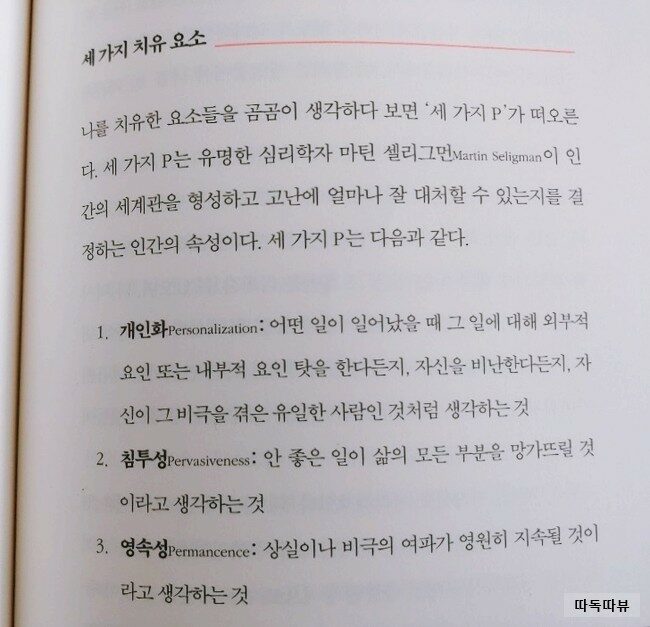 세 가지 치유 요소
나를 치유한 요소들을 곰곰이 생각하다 보면 ‘세 가지 P’가 떠오른
다. 세 가지 P는 유명한 심리학자 마틴 셀리그먼Martin Seligman이 인
간의 세계관을 형성하고 고난에 얼마나 잘 대처할 수 있는지를 결
정하는 인간의 속성이다. 세 가지 P는 다음과 같다.
1. 개인화Personalization: 어떤 일이 일어났을 때 그 일에 대해 외부적
요인 또는 내부적 요인 탓을 한다든지, 자신을 비난한다든지, 자
신이 그 비극을 겪은 유일한 사람인 것처럼 생각하는 것
2. 침투성Pervasiveness: 안 좋은 일이 삶의 모든 부분을 망가뜨릴 것
이라고 생각하는 것
3. 영속성Permancence: 상실이나 비극의 여파가 영원히 지속될 것이
라고 생각하는 것
따독따뷰